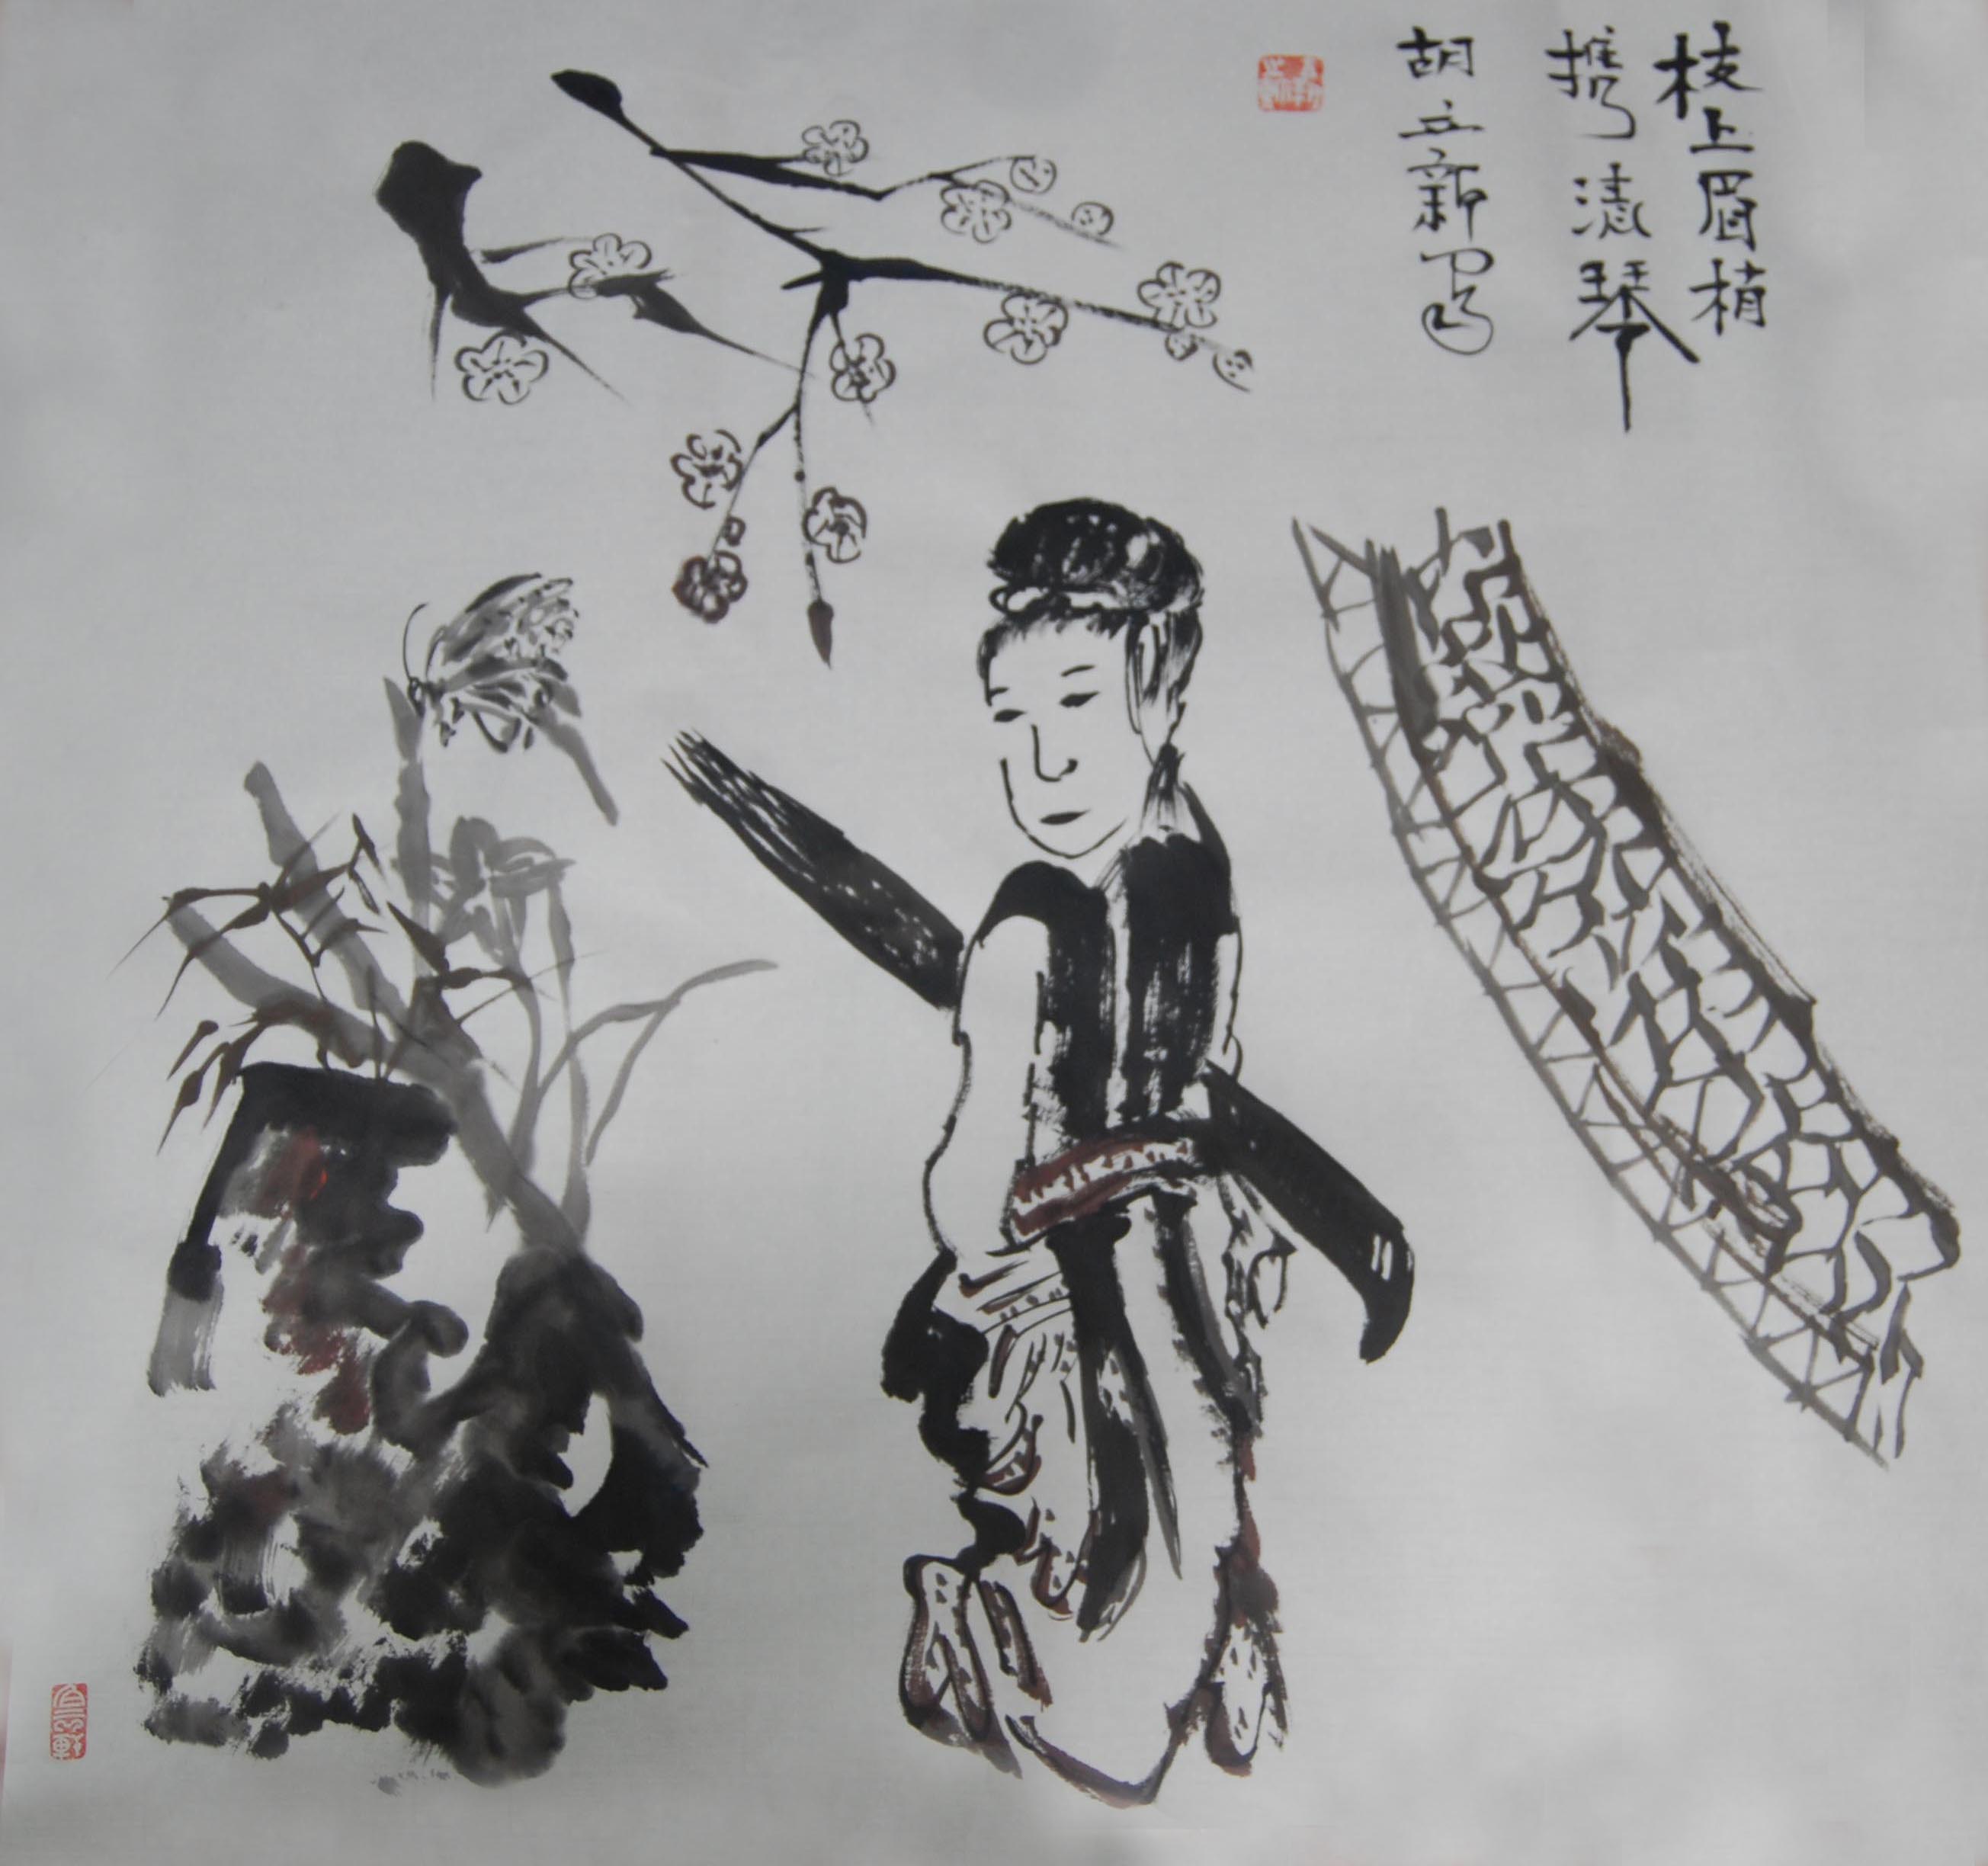 枝上眉梢
携清琴
胡立新写